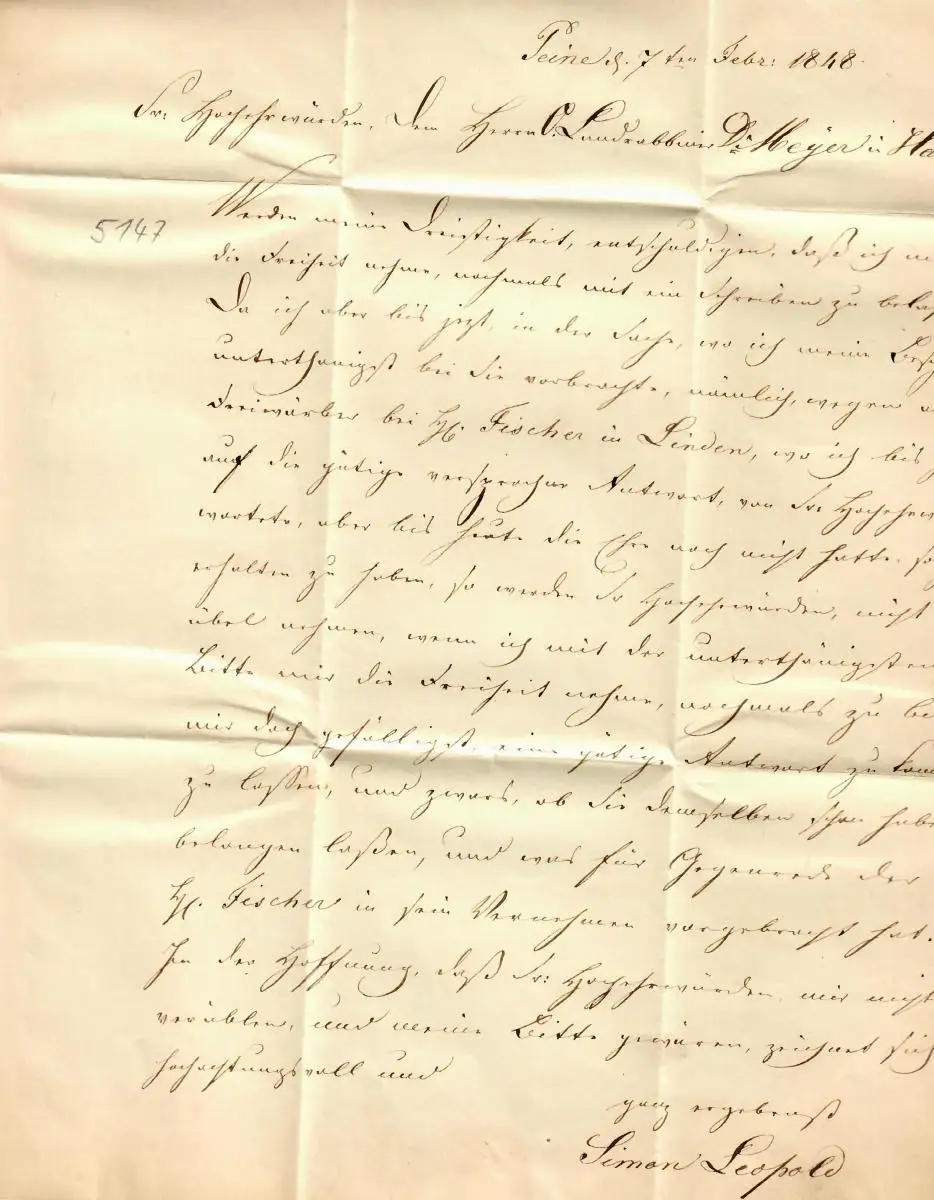 Peine d. 7ten Febr: 1848.
Sr: Hochehrwürden, Dem Herrn O. Landrabbiner Dr. Meyer in Ha
5147
Werden meine Dreistigkeit, entschuldigen, daß ich
die Freiheit nehme, nochmals mit ein Schreiben zu
Da ich aber bis jezt, in der Sache, wo ich meine
unterthänigst bei Sie vorbrachte, nämlich, wegen
Freiwärber bei H. Fischer in Linden, wo ich bis
auf die gütige versprochne Antwort, von Sr: Hochehrw
wartete, aber bis heute die Ehre noch nicht hatte, so
erhalten zu haben, so werden Sr Hochehrwürden, nicht
übel nehmen, wenn ich mit der unterthänigsten
Bitte mir die Freiheit nehme, nochmals zu
mir doch gefälligst, eine gütige Antwort zu kom
zu lassen, und zwars, ob Sie demselben schon habe
belangen laßen, und was für Gegenrede der
H. Fischer in sein Vernehmen vorgebracht hat.
In der Hoffnung, daß Sr: Hochehrwürden, mir nicht
verüblen, und meine Bitte gewären, zeichnet sich
hochachtungsvoll und
ganz ergebenst
Simon Leopold